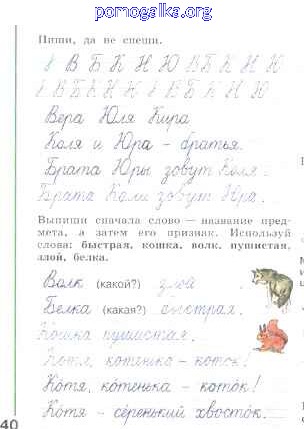 pomogalka.org
Пиши, да не спеши.
В Б К Н Ю В Б К Н Ю
В Б К Н Ю
Вера Юля Кира
Коля и Юра – братья.
Брата Юры зовут Коля.
Брата Коли зовут Юра.
Выпиши сначала слово — название пред-
мета, а затем его признак. Используй
слова: быстрая, кошка, волк, пушистая,
злой, белка.
Волк (какой?) злой
Белка (какая?) быстрая.
Кошка пушистая.
Котя, котенька – коток!
Котя, котенька – коток!
Котя – серенький хвосток.
40